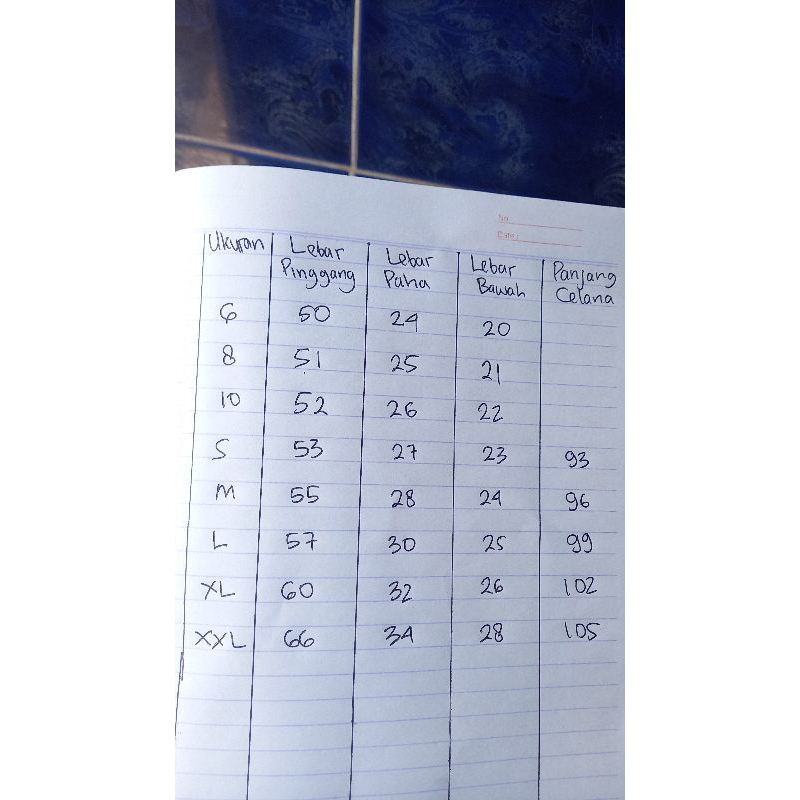 No
Date:
Ukuran Lebar Pinggang Lebar Paha Lebar Bawah Panjang Celana
6 50 24 20
8 51 25 21
10 52 26 22
S 53 27 23 93
M 55 28 24 96
L 57 30 25 99
XL 60 32 26 102
XXL 66 34 28 105